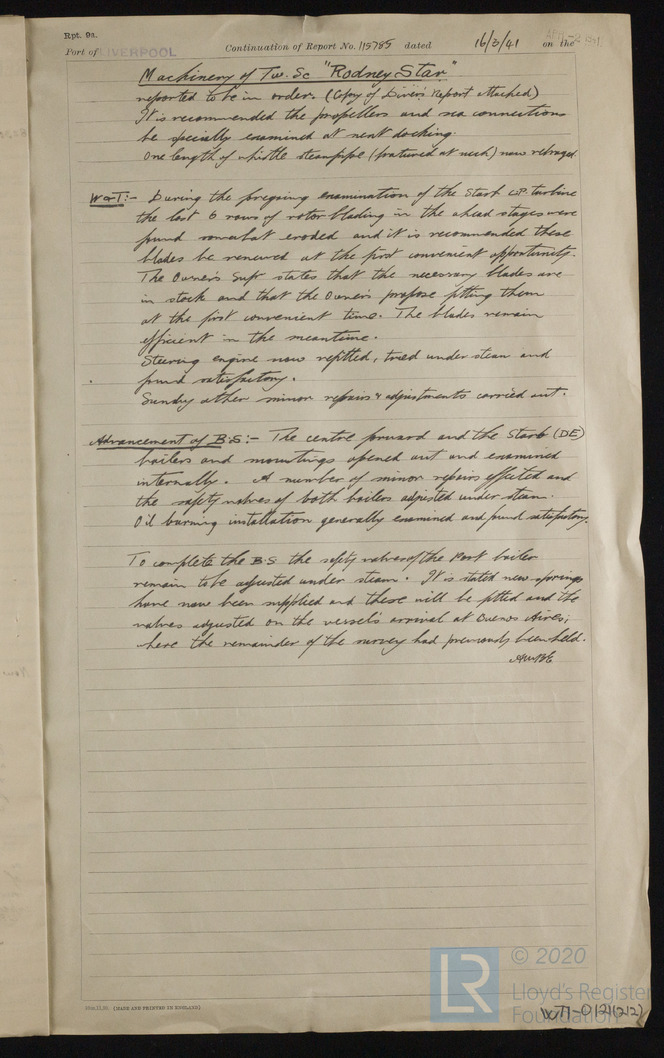 Rpt. 9a.
Port of LIVERPOOL Continuation of Report No. 119785 dated 16/3/41 on the
Machinery of Tw. Sc "Rodney Star"
reported to be in order. (Copy of Divers Report attached)
It is recommended the propellers and sea connections
be specially examined at next docking.
One length of whistle steampipe (fractured at neck) now
W&T:- During the foregoing examination of the Starb LP turbine
the last 6 rows of rotor blading in the ahead stages were
found somewhat eroded and it is recommended these
blades be renewed at the first convenient opportunity.
The Owner's Supt states that the necessary blades are
in stock and that the Owners propose fitting them
at the first convenient time. The blades remain
efficient in the meantime.
Steering engine now refitted, tried under steam and
found satisfactory.
Sundry other minor repairs & adjustments carried out.
Advancement of B.S:- The centre forward and the Starb (DE)
boilers and mountings opened out and examined
internally. A number of minor repairs effected and
the safety valves of both boilers adjusted under steam.
Oil burning installation generally examined and found satisfactory.
To complete the B.S the safety valves of the Port boiler
remain to be adjusted under steam. It is stated new springs
have now been supplied and these will be fitted and the
valves adjusted on the vessel's arrival at Buenos Aires;
where the remainder of the survey had previously been held.
(MADE AND PRINTED IN ENGLAND)
© 2020
LR
Lloyd's Register
Foundation
W71-0121(2/2)